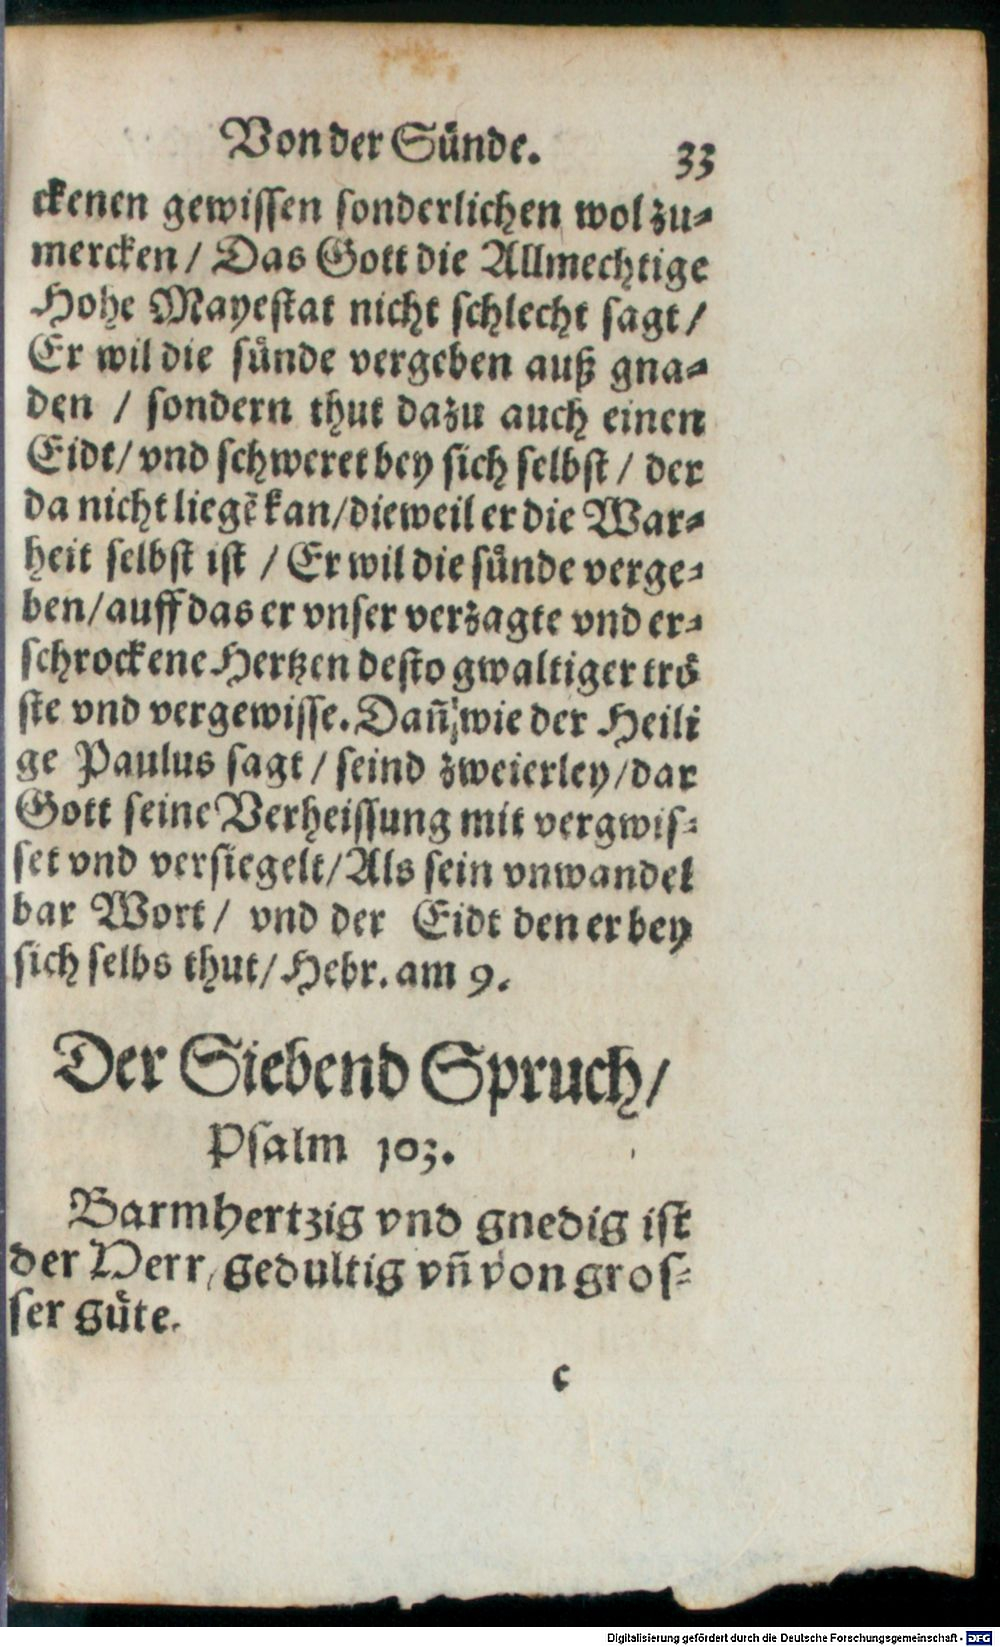 Von der Sünde. 33
ckenen gewissen sonderlichen wol zu-
mercken / Das Gott die Allmechtige
Hohe Mayestat nicht schlecht sagt /
Er wil die sünde vergeben auß gna-
den / sondern thut dazu auch einen
Eidt / vnd schweret bey sich selbst / der
da nicht liegẽ kan / dieweil er die War-
heit selbst ist / Er wil die sünde verge-
ben / auff das er vnser verzagte vnd er-
schrockene Hertzen desto gwaltiger trö
ste vnd vergewisse. Dañ wie der Heili
ge Paulus sagt / seind zweierley / dar
Gott seine Verheissung mit vergwis-
set vnd versiegelt / Als sein vnwandel
bar Wort / vnd der Eidt den er bey
sich selbs thut / Hebr. am 9.
Der Siebend Spruch /
Psalm 103.
Barmhertzig vnd gnedig ist
der Herr, gedultig vñ von gros-
ser güte.
c
Digitalisierung gefördert durch die Deutsche Forschungsgemeinschaft - DFG